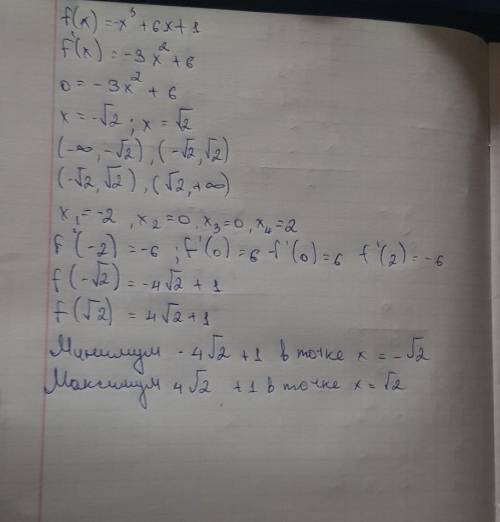 f(x) = -x³ + 6x + 1
f'(x) = -3x² + 6
0 = -3x² + 6
x = -√2 ; x = √2
(-∞, -√2), (-√2, √2)
(-√2, √2), (√2, +∞)
x₁ = -2, x₂ = 0, x₃ = 0, x₄ = 2
f'(-2) = -6 ; f'(0) = 6 f'(0) = 6 f'(2) = -6
f(-√2) = -4√2 + 1
f(√2) = 4√2 + 1
Минимум -4√2 + 1 в точке x = -√2
Максимум 4√2 + 1 в точке x = √2